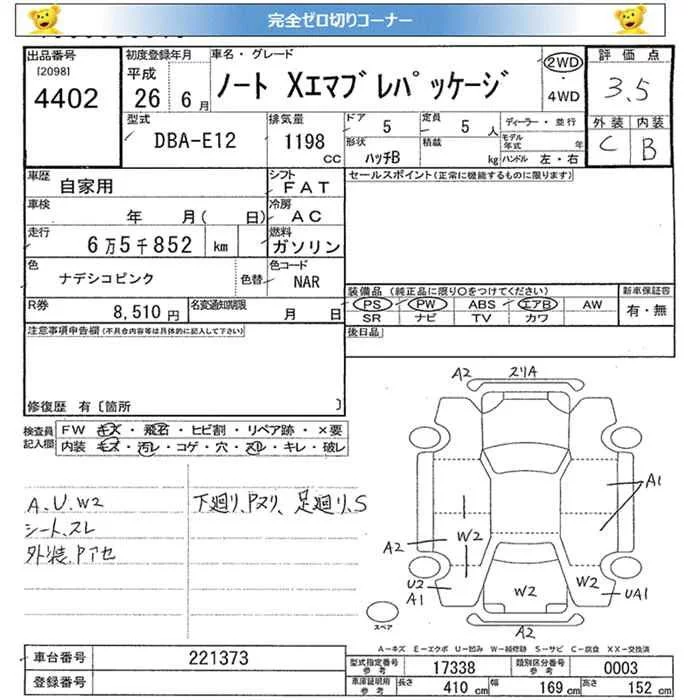 完全ゼロ切りコーナー
出品番号
[2098]
4402
初度登録年月
平成
26 6月
車名・グレード
ノート Xエマブレパッケージ
2WD
4WD
評価点
3.5
外装 内装
C B
型式
DBA-E12
排気量
1198
CC
ドア
5
定員
5 人
ディーラー・並行
モデル年式 年
形状
ハッチB
積載
kg
ハンドル 左・右
車歴
自家用
シフト
FAT
セールスポイント(正常に機能するものに限ります)
車検
年 月( 日)
冷房
AC
走行
6万5千852 km
燃料
ガソリン
色
ナデシコピンク
色替
色コード
NAR
装備品 (純正品に限り○をつけてください)
新車保証書
PS PW ABS エアB AW
有・無
SR ナビ TV カワ
R券
8,510円
名変通知期限
月 日
後日品
注意事項申告欄(不具合内容等は具体的に記入して下さい)
修復歴 有〔箇所 〕
検査員
記入欄
FW キズ・飛石・ヒビ割・リペア跡・×要
内装 モズ・汚レ・コゲ・穴・スレ・キレ・破レ
A.U.W2
シート、スレ
外装、Pアセ
下廻り、Pヌリ、足廻り、S
A2
A1
A2
W2
U2
A1
W2
W2
UA1
A2
スペア
A-キズ E-エクボ U-凹み W-補修跡 S-サビ C-腐食 XX-交換済
車台番号
221373
登録番号
型式指定番号
参考
17338
類別区分番号
参考
0003
車庫証明用
参考
長さ
410 cm
幅
169 cm
高さ
152 cm